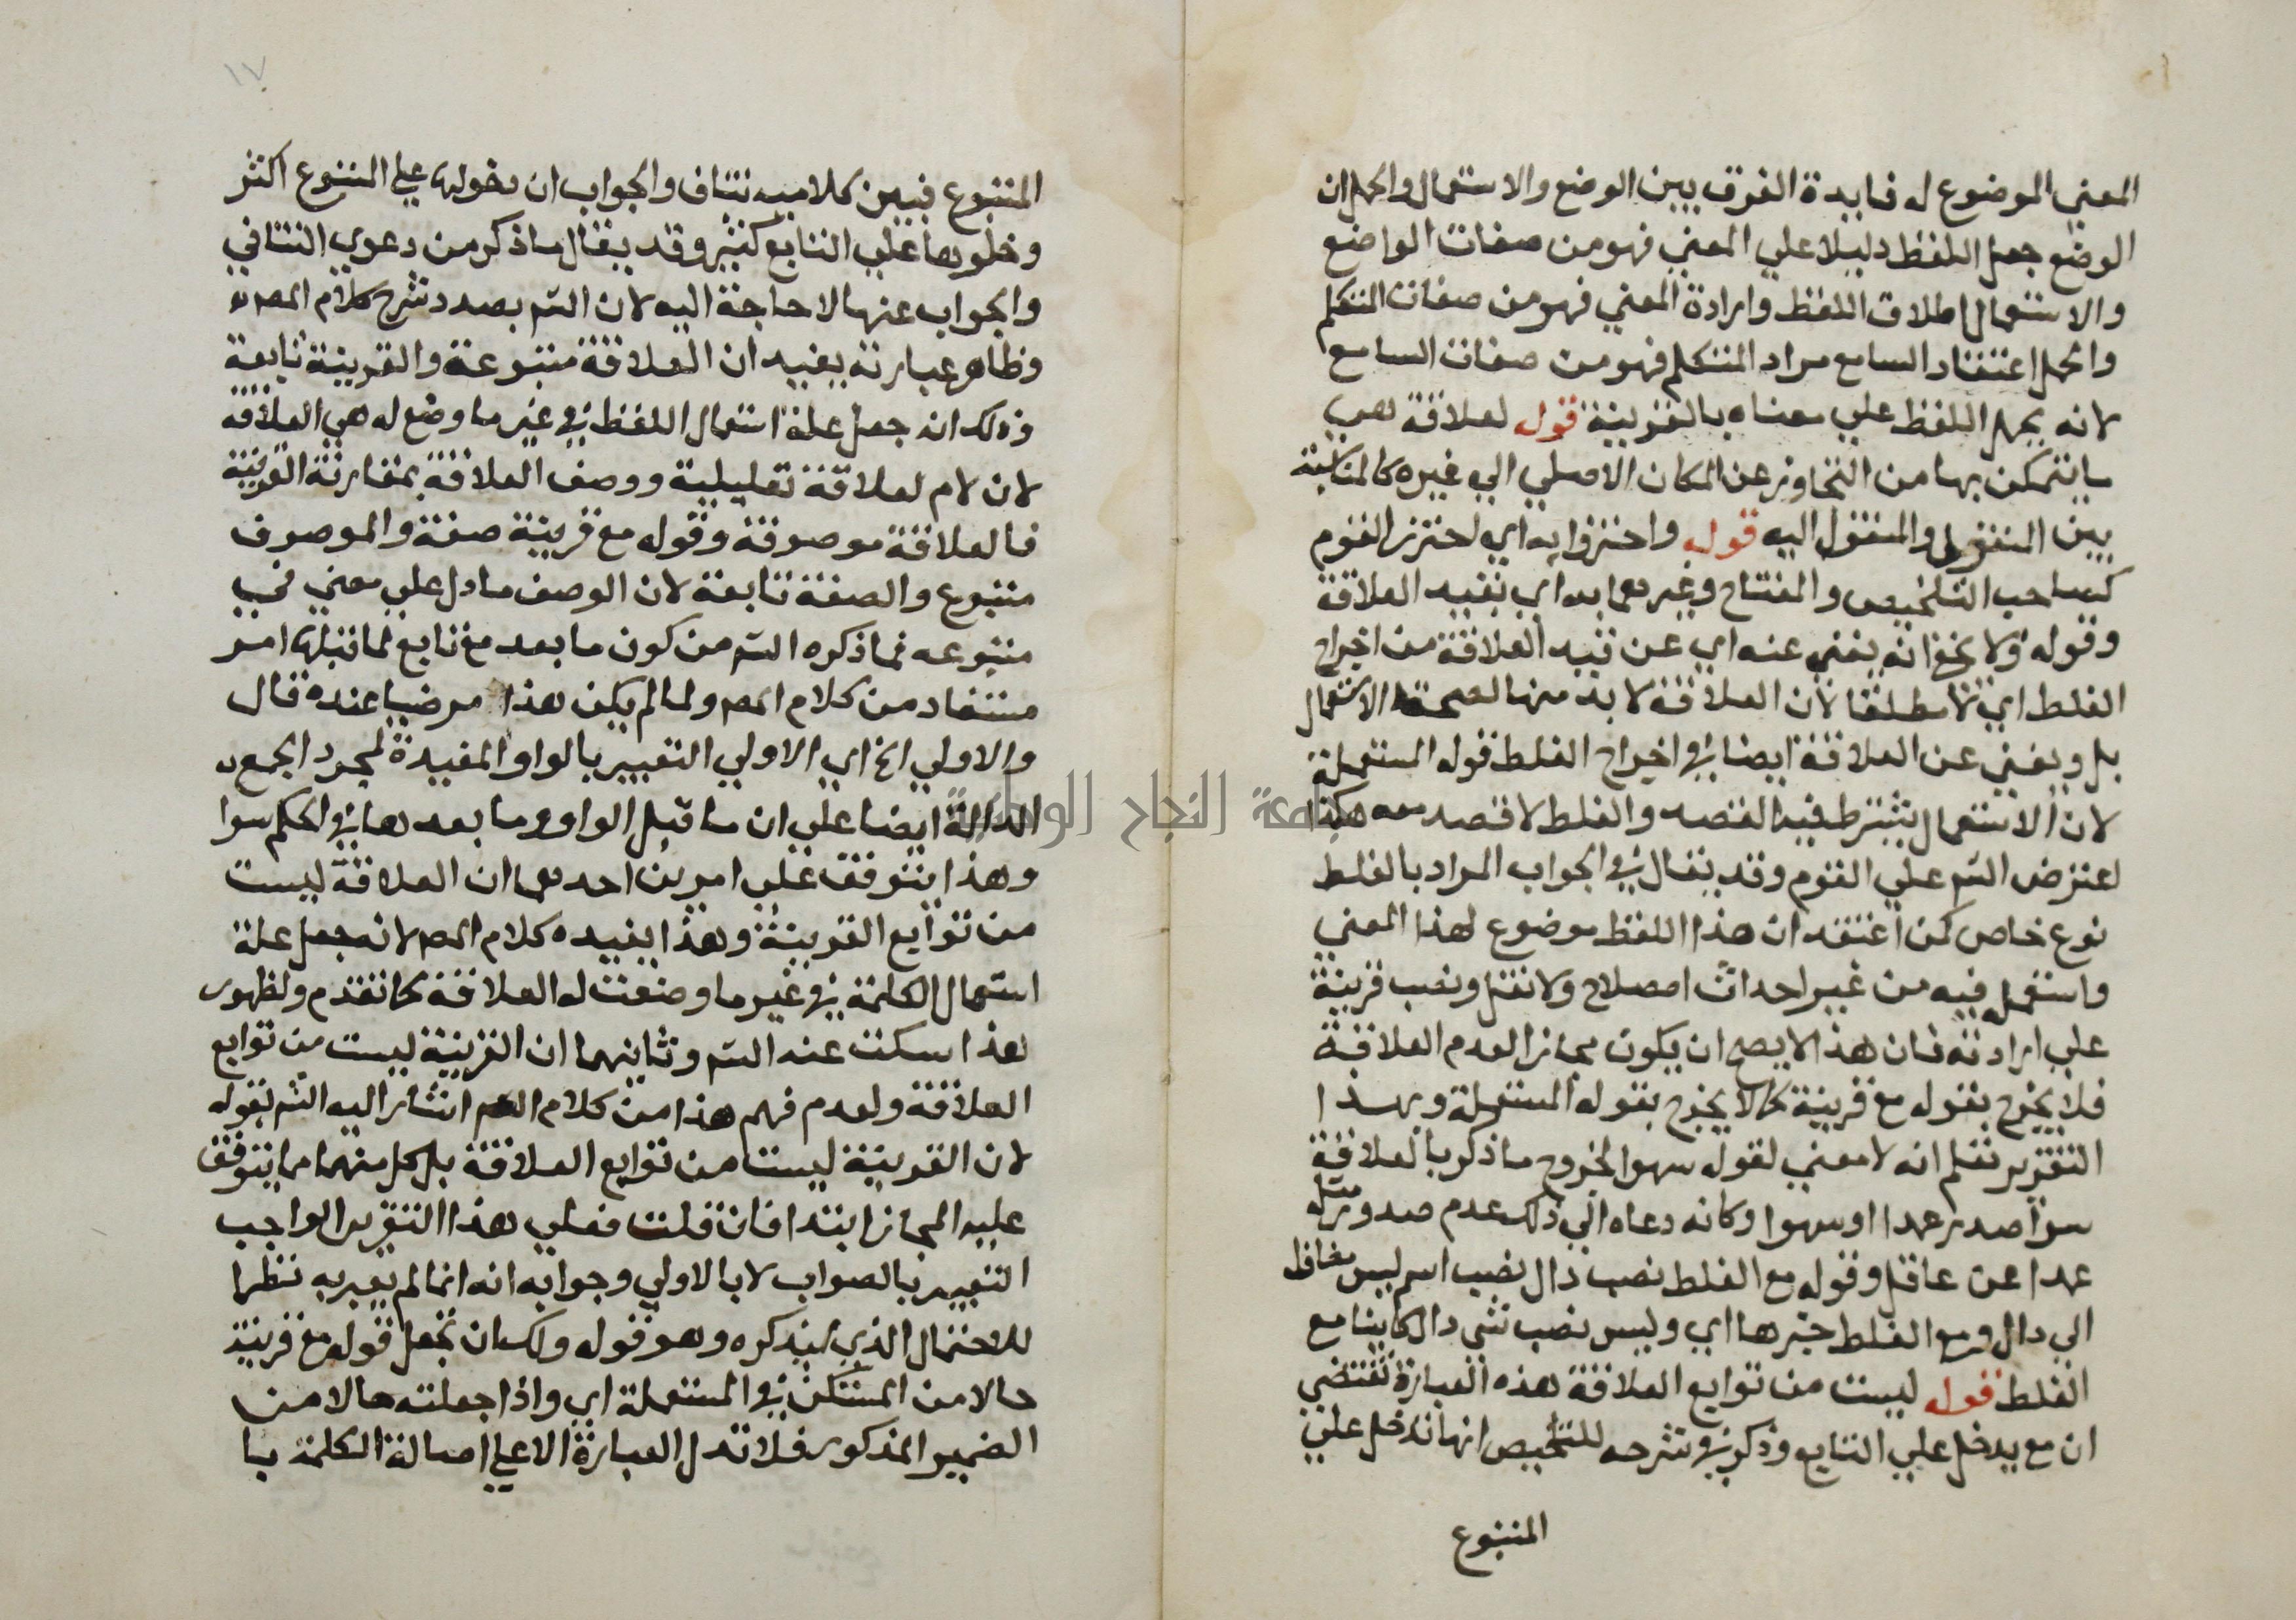 المعني الموضوع له فايدة الفرق بين الوضع والاستعمال والحمل ان
الوضع جعل اللفظ دليلا علي المعني فهو من صفات الواضع
والاستعمال اطلاق اللفظ وارادة المعني فهو من صفات المتكلم
والحمل اعتقاد السامع مراد المتكلم فهو من صفات السامع
لانه يحمل اللفظ علي معناه بالقرينة قوله لعلاقة هي
ما يتمكن بها من التجاوز عن المكان الاصلي الي غيره كالمناسبة
بين المنقول والمنقول اليه قوله واحترزوا به اي احترز القوم
كصاحب التلخيص والمفتاح وغيرهما به اي بقيد العلاقة
وقوله ولا يخفا انه يغني عنه اي عن قيد العلاقة من اخراج
الغلط اي لا مطلقا لان العلاقة لا بد منها لصحة الاستعمال
بل ويغني عن العلاقة ايضا في اخراج الغلط قوله المستعملة
لان الاستعمال يشترط فيه القصد والغلط لا قصد معه هكذا
اعترض الشم علي القوم وقد يقال في الجواب المراد بالغلط
نوع خاص كمن اعتقد ان هذا اللفظ موضوع لهذا المعني
واستعمله فيه من غير احداث اصطلاح ولا نقل ونصب قرينة
علي ارادته فان هذا لا يصح ان يكون مجازا لعدم العلاقة
فلا يخرج بقوله مع قرينة كما لا يخرج بقوله المستعملة وبهذا
التقرير تعلم انه لا معني لقوله سهوا لخروج ما ذكر بالعلاقة
سوا صدر عمدا او سهوا وكانه دعاه الي ذلك عدم صدور مثله
عمدا عن عاقل وقوله مع الغلط نصب دال نصب اسم ليس مضاف
الي دال ومع الغلط خبرها اي وليس نصب شي دال كاينا مع
الغلط قوله ليست من توابع العلاقة هذه العبارة تقتضي
ان مع يدخل علي التابع وذكر في شرحه للتلخيص انها تدخل علي
المتبوع
١٧
المتبوع فبين كلاميه تناف والجواب ان دخولها علي المتبوع اكثر
ودخولها علي التابع كثير وقد يقال ما ذكر من دعوي التنافي
والجواب عنها لا حاجة اليه لان الشم بصدد شرح كلام المصـ
وظاهر عبارته يفيد ان العلاقة متبوعة والقرينة تابعة
وذلك انه جعل علة استعمال اللفظ في غير ما وضع له هي العلاقة
لان لام لعلاقة تعليلية ووصف العلاقة بمقارنة القرينة
فالعلاقة موصوفة وقوله مع قرينة صفة والموصوف
متبوع والصفة تابعة لان الوصف ما دل علي معني في
متبوعه فما ذكره الشم من كون ما بعد مع تابع لما قبلها امر
مستفاد من كلام المصـ ولما لم يكن هذا مرضيا عنده قال
والاولي الخ اي الاولي التعبير بالواو المفيدة لمجرد الجمع
الدالة ايضا علي ان ما قبل الواو وما بعدها في الحكم سوا
وهذا يتوقف علي امرين احدهما ان العلاقة ليست
من توابع القرينة وهذا يفيده كلام المصـ لانه جعل علة
استعمال الكلمة في غير ما وضعت له العلاقة كما تقدم ولظهور
هذا سكت عنه الشم وثانيهما ان القرينة ليست من توابع
العلاقة ولعدم فهم هذا من كلام المصـ اشار اليه الشم بقوله
لان القرينة ليست من توابع العلاقة بل كل منهما مما يتوقف
عليه المجاز ابتدا فان قلت فعلي هذا التقرير الواجب
التعبير بالصواب لا بالاولي وجوابه انه انما لم يعبر به نظرا
للاحتمال الذي سيذكره وهو قوله ولك ان تجعل قوله مع قرينة
حالا من المستكن في المستعملة اي واذا جعلته حالا من
الضمير المذكور فلا تدل العبارة الا علي اصالة الكلمة با
جامعة النجاح الوطنية